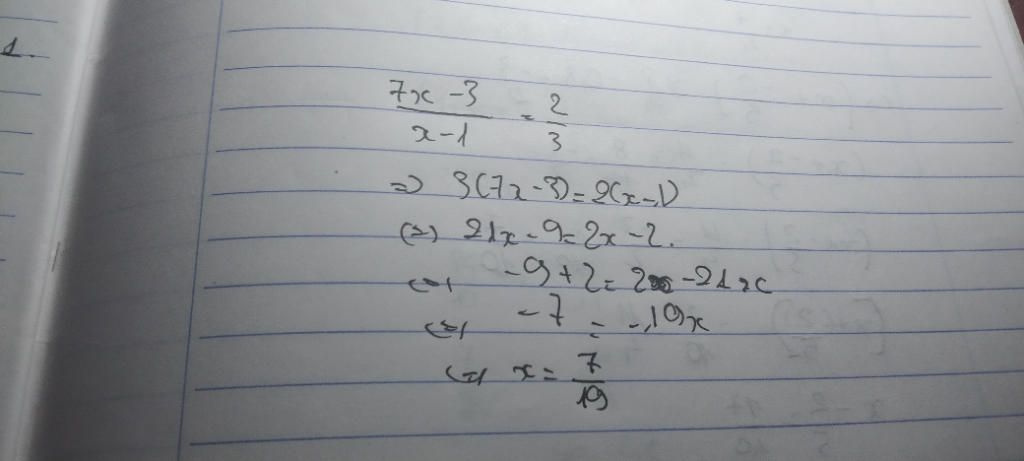 1.
7x - 3 / x - 1 = 2 / 3
=> 3(7x - 3) = 2(x - 1)
(=) 21x - 9 = 2x - 2.
(=) -9 + 2 = 2x - 21x
(=) -7 = -19x
(=) x = 7 / 19